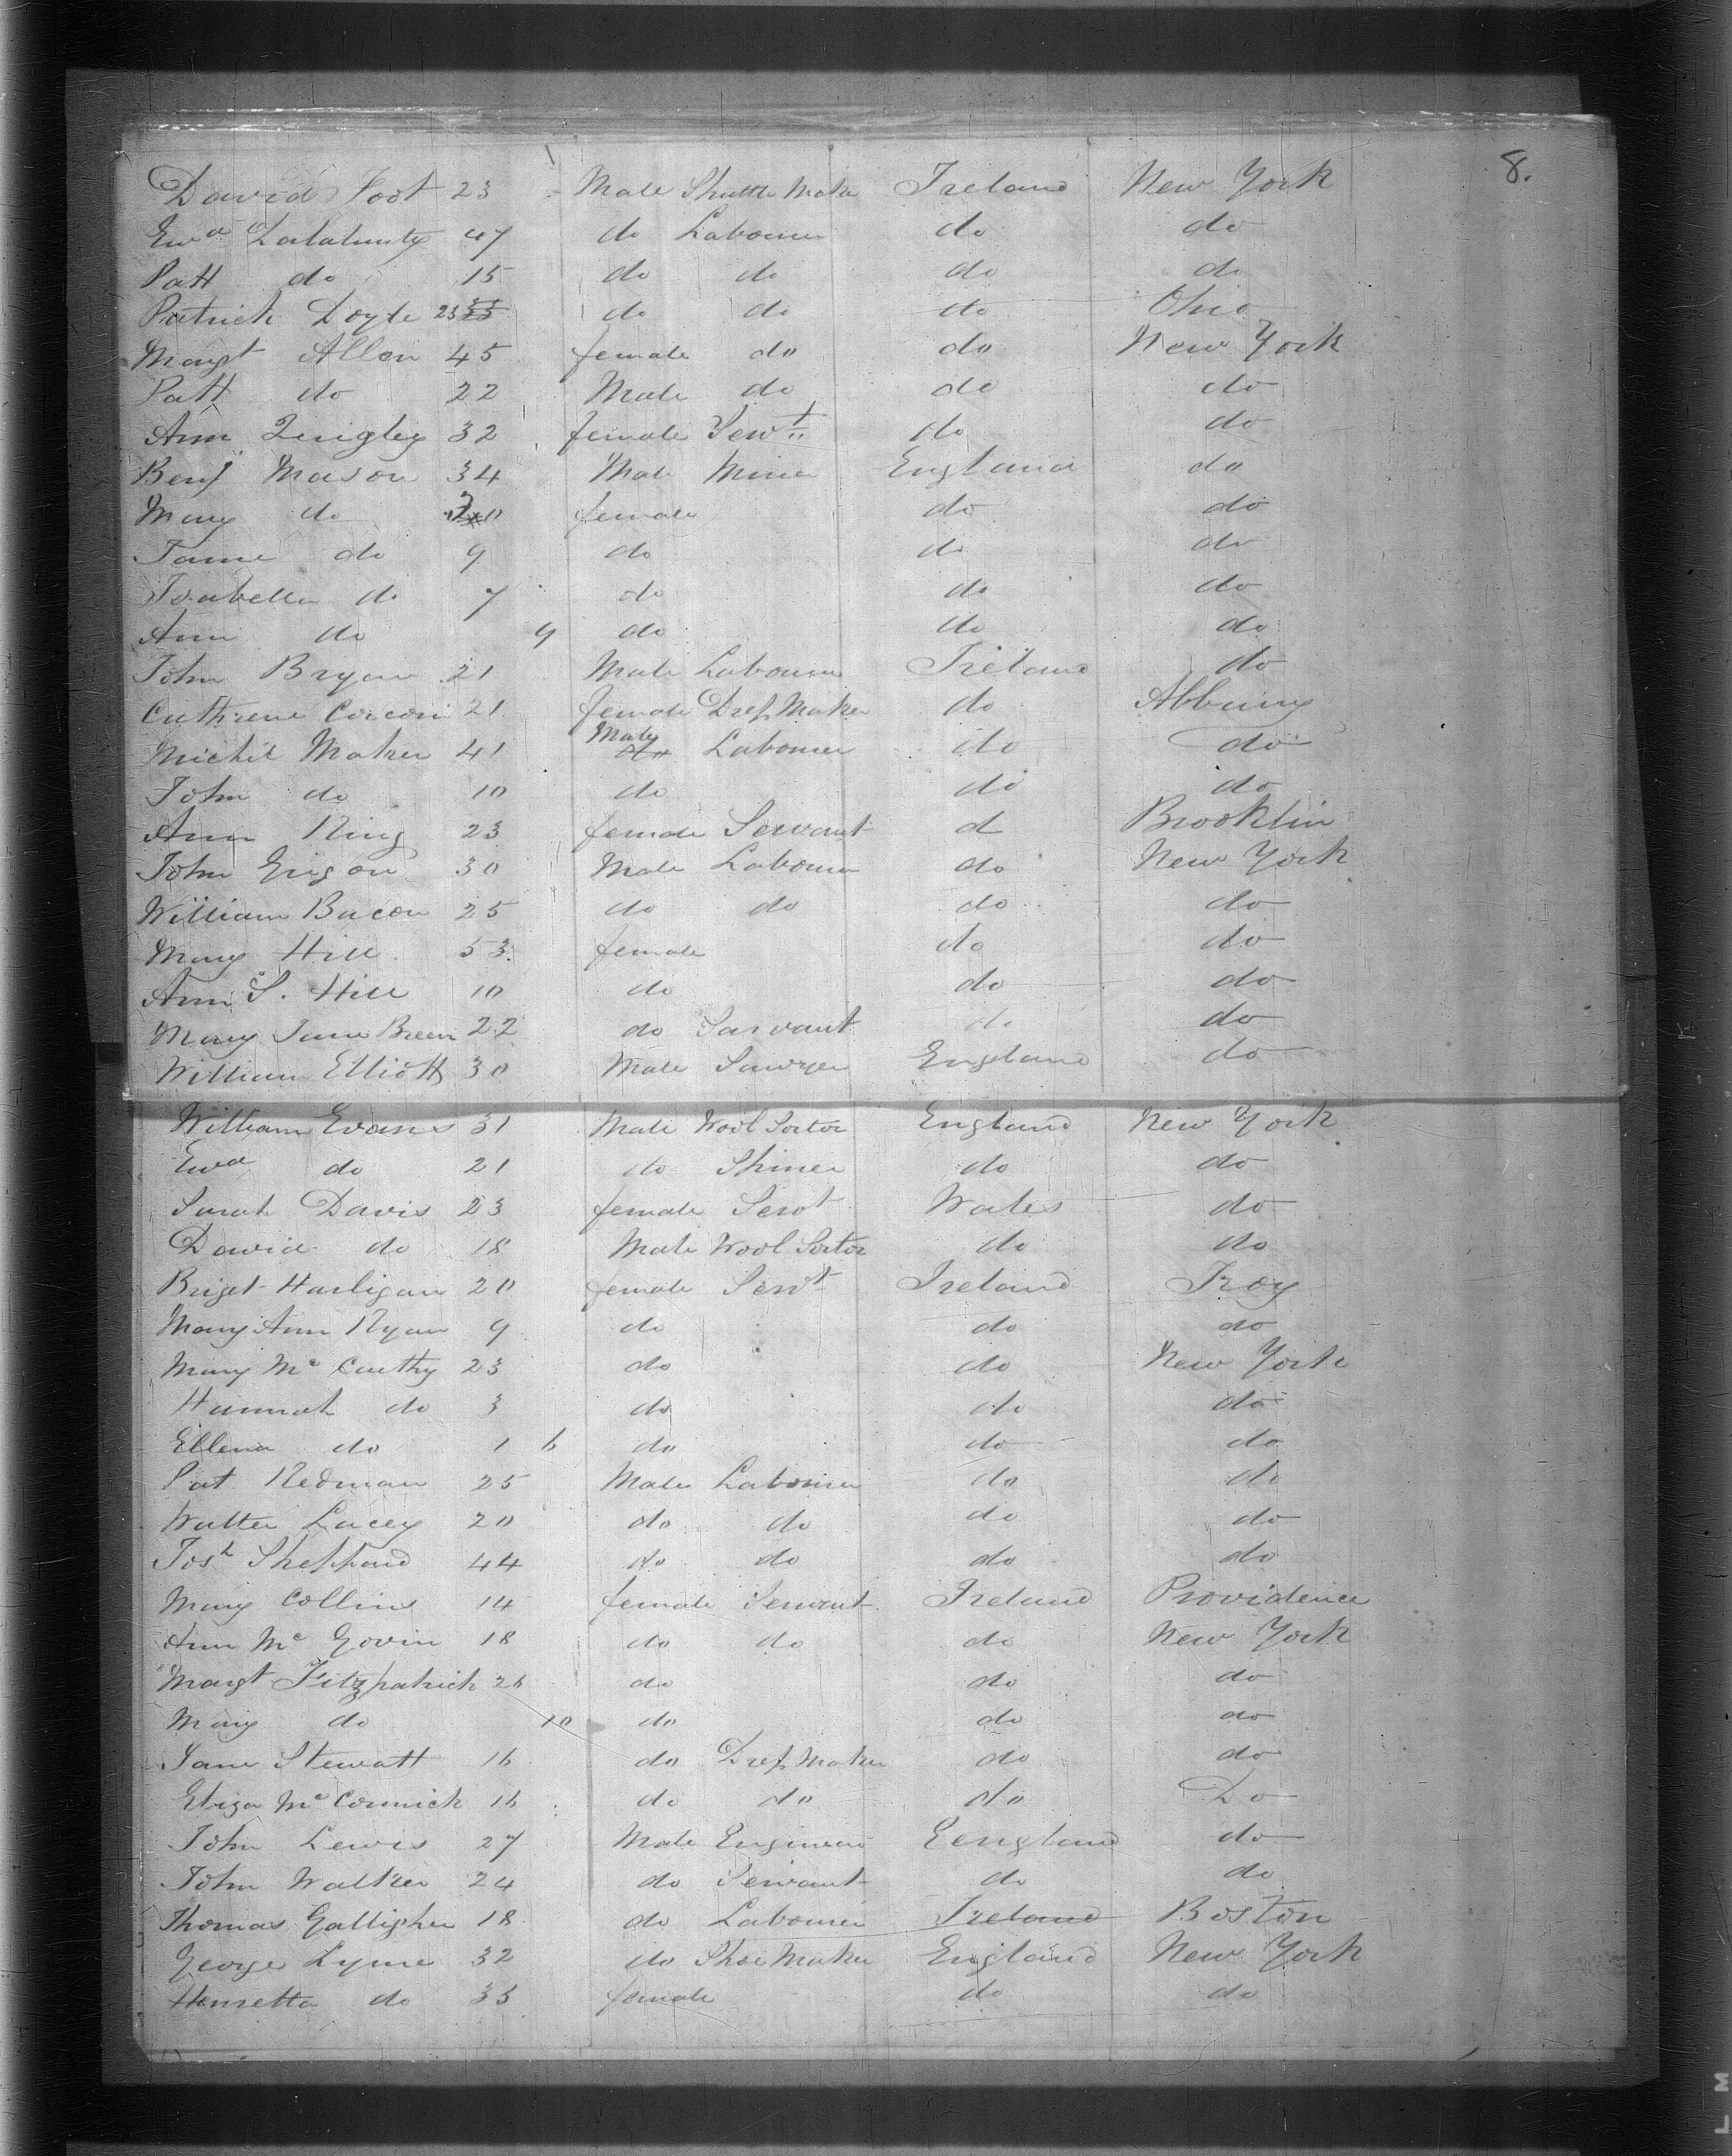 8.
David Foot 23 Male Shuttle Maker Ireland New York
Ewd 47 do Labourer do do
Patt do 15 do do do do
Patrick Doyle 23 do do do Ohio
Margt Allen 45 female do do New York
Patt do 22 Male do do do
Ann 32 female Servt do do
Benj Mason 34 Male Miner England do
Mary do female do do
Jane do 9 do do do
Isabella do 7 do do do
Ann do 9 do do do
John Bryan 21 Male Labourer Ireland do
Cathrene 21 female Dress Maker do
Michel Maher 41 Male Labourer do do
John do 10 do do do
Ann King 23 female Servant d Brooklin
John 30 Male Labourer do New York
William Bacon 25 do do do do
Mary Hill 53 female do do
Ann S. Hill 10 do do do
Mary Jane Breen 22 do Sarvant do do
William Elliott 30 Male Sawyer England do
William Evans 31 Male Wool Sortor England New York
Ewd do 21 do do do
Sarah Davis 23 female Servt Wales do
David do 18 Male Wool Sortor do do
Briget Harligan 20 female Servt Ireland Troy
Mary Ann Ryan 9 do do do
Mary Mc Carthy 23 do do New York
Hannah do 3 do do do
Ellena do 1 6 do do do
Pat Redman 25 Male Labourer do do
Walter Lacey 20 do do do do
Josh Sheppard 44 do do do do
Mary Collins 14 female Servant Ireland Providence
Ann Mc Govin 18 do do do New York
Margt Fitzpatrick 26 do do do
Mary do 10 do do do
Jane Stewatt 16 do Dress Maker do do
Eliza Mc Cormick 16 do do do Do
John Lewis 27 Male Engineer Eengland do
John Walker 24 do Servant do do
Thomas Galligher 18 do Labourer Ireland Boston
George Lyme 32 do Shoe Maker England New York
Henretta do 33 female do do